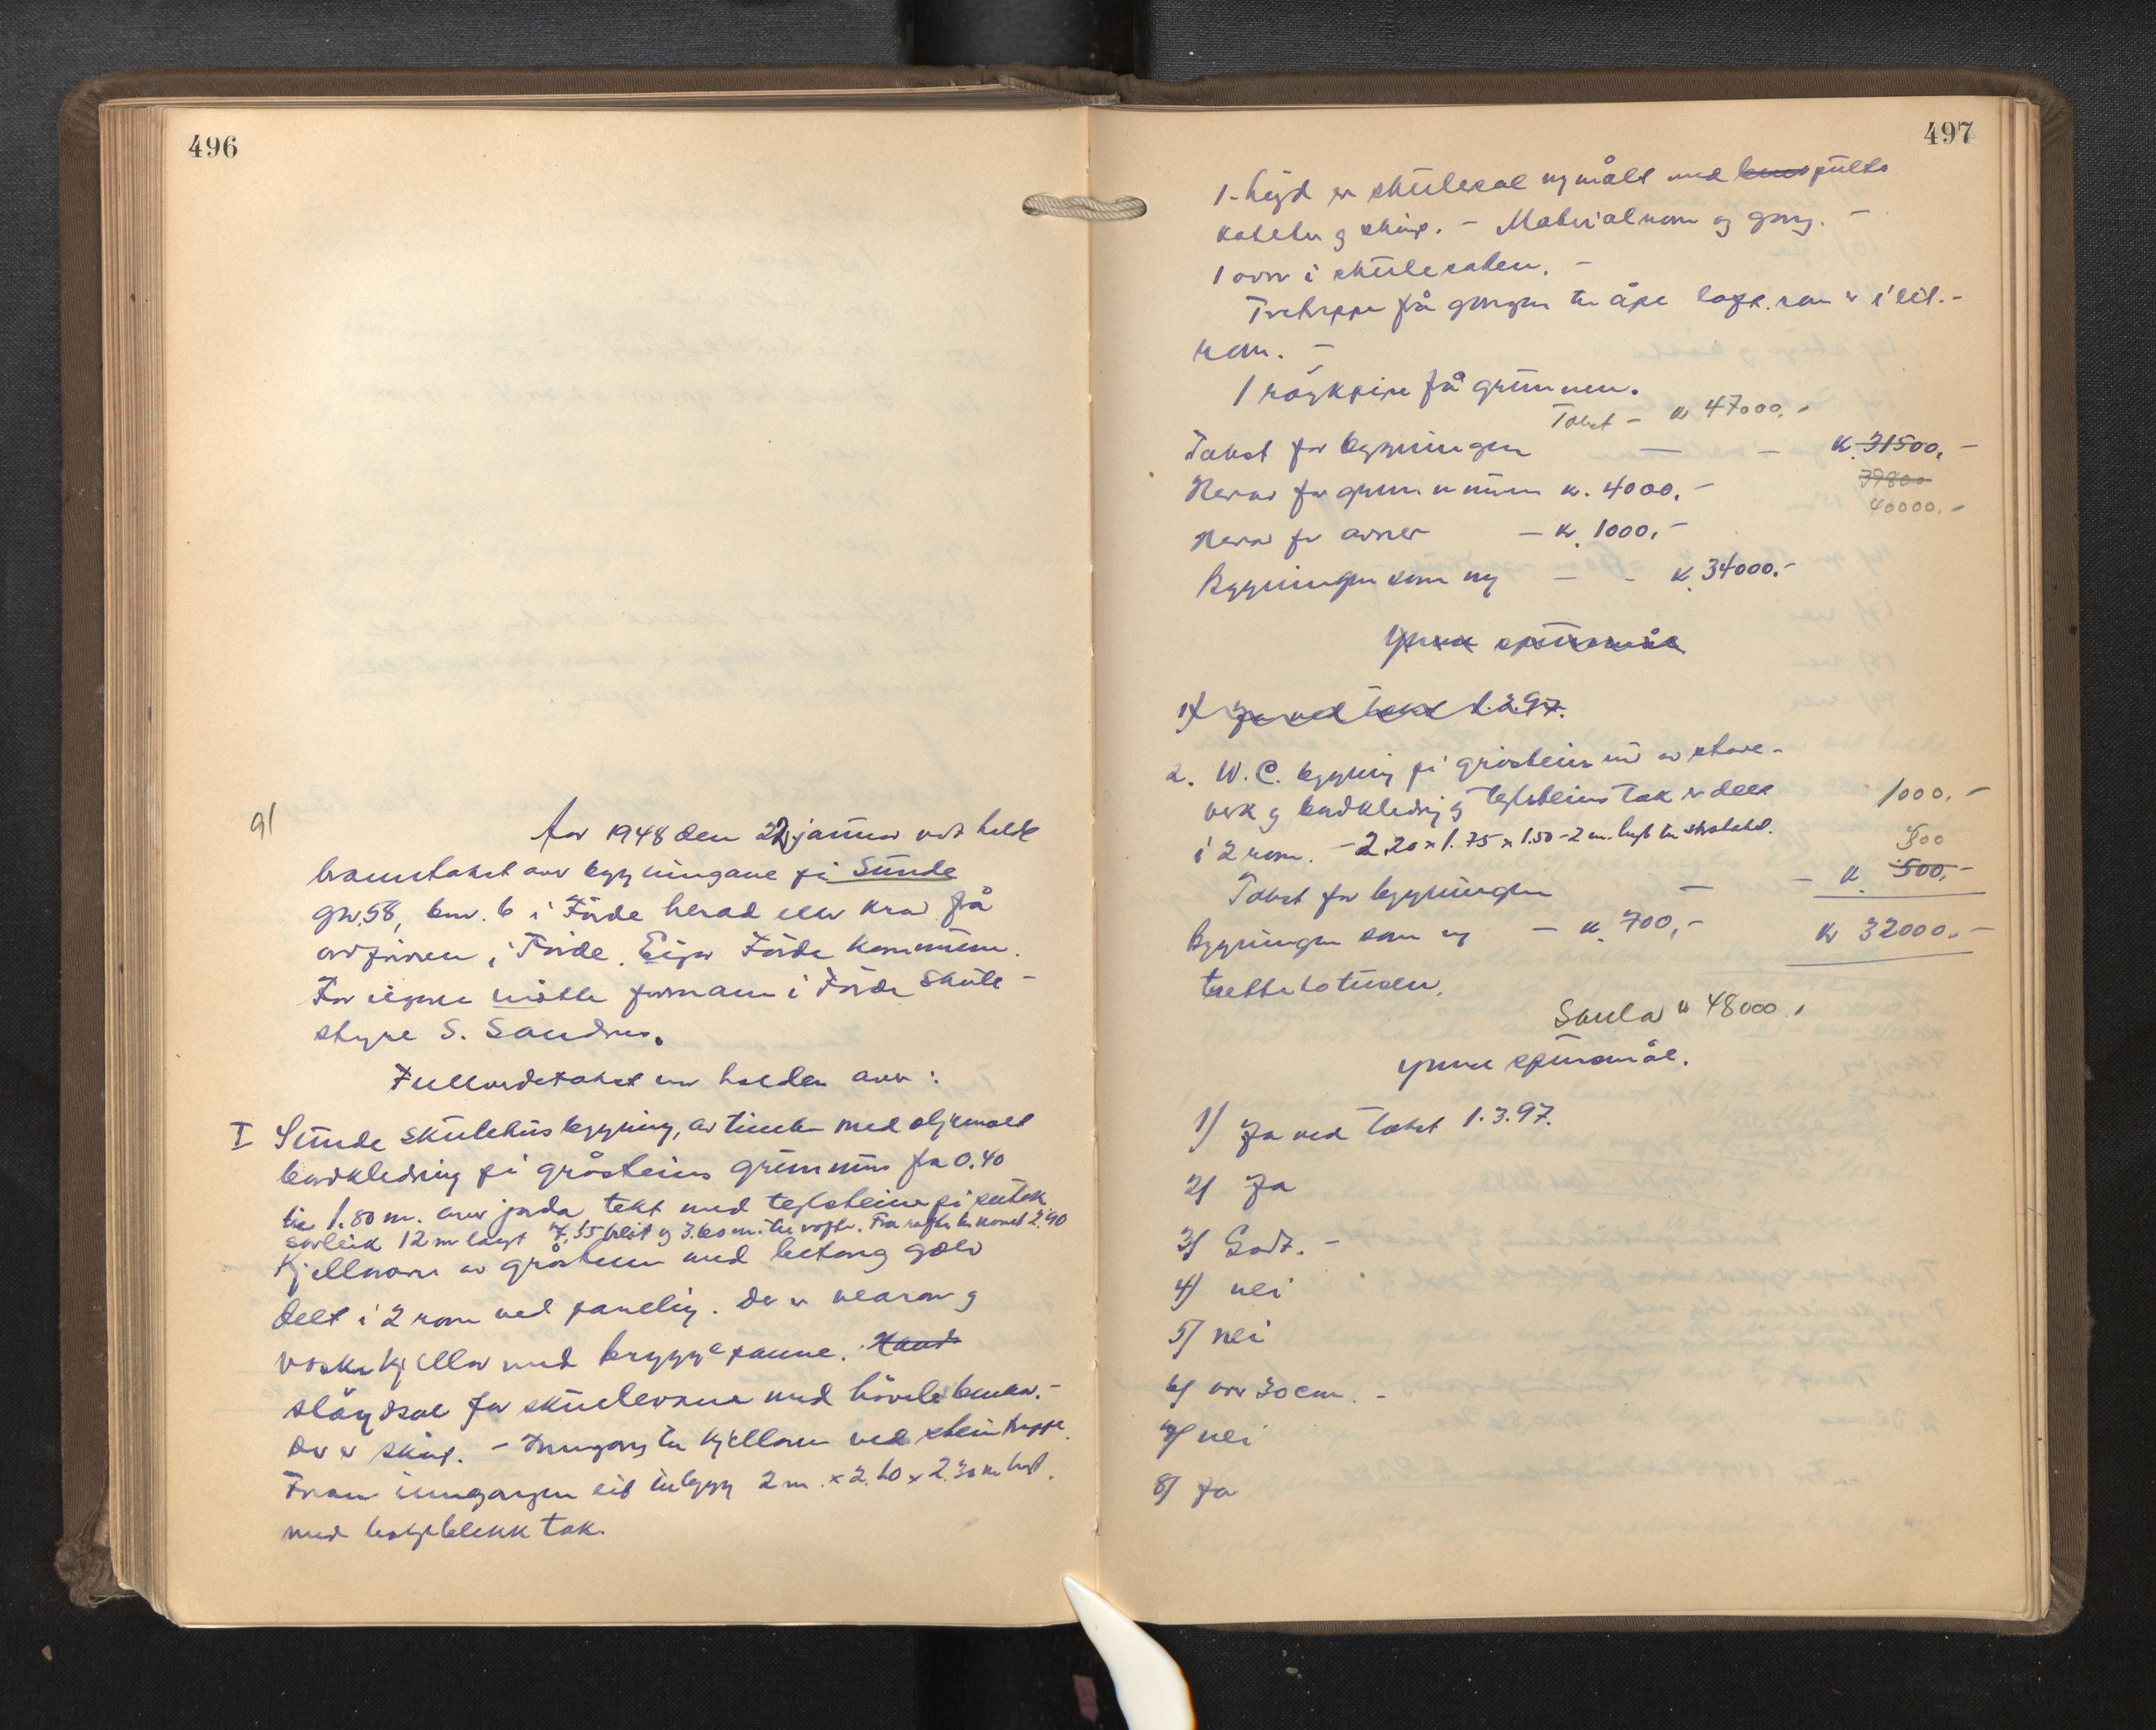 496
91
Aar 1948 den 22 januar vart helde
branntakst over bygningane på Sunde
gnr. 58, bnr. 6 i Förde herad etter krav frå
ordføraren i Förde. Eigar Förde kommune.
For eigaren møtte formann i Förde skule-
styre S. Sandnes.
Fullverdetakst er halden over:
I Sunde skulehusbygning, av timber med oljemalt
bordkledning på gråsteins grunnmur fra 0.40
til 1.80 m. over jorda tekt med teglstein på sutak
Storleik 12 m langt 7.55 breit og 3.60 m. til raft. Fra raft til mønet 2.90
Kjellarar av gråstein med betong golv
delt i 2 rom ved paneling. Der er vearom og
vaskekjellar med bryggepanne. Hand
sløydsal for skulelevane med hövelbenkar. -
Der er skåp. - Inngang til kjellaren ved steintrapp.
Framm inngangen eit tilbygg 2 m. × 2.60 × 2.30 m högt.
med bølgeblekk tak.
497
1. högd er skulesal nymålt med pultar
kateter og skåp. - Materialrom og gang. -
1 omn i skulesalen. -
Tretrappe frå gangen til åpe loft. som er i eit -
rom. -
1 röykpipe frå grunnen.
Takst - kr 47000. -
Takst for bygningen - - kr. 31500. -
39800
40000. -
Herav for grunnmuren kr. 4000. -
Herav for omner - kr. 1000. -
Bygningen som ny - - kr. 34000. -
Ymse spursmål
1) Ja ved takst 1.3.97.
2. W.C. bygning på gråsteinsmur av stave-
verk og bordkledning og teglsteins tak er delt
1000. -
i 2 rom. - 2.20 × 1.75 × 1.50 - 2 m. högt til
800
Takst for bygningen - - kr. 500. -
Bygningen som ny - kr. 700, - kr 32000. -
trettitotusen.
Samla kr 48000. -
Ymse spursmål.
1) Ja ved takst 1.3.97.
2) Ja
3) Godt. -
4) nei
5) nei
6) over 30 cm. -
7) nei
8) Ja